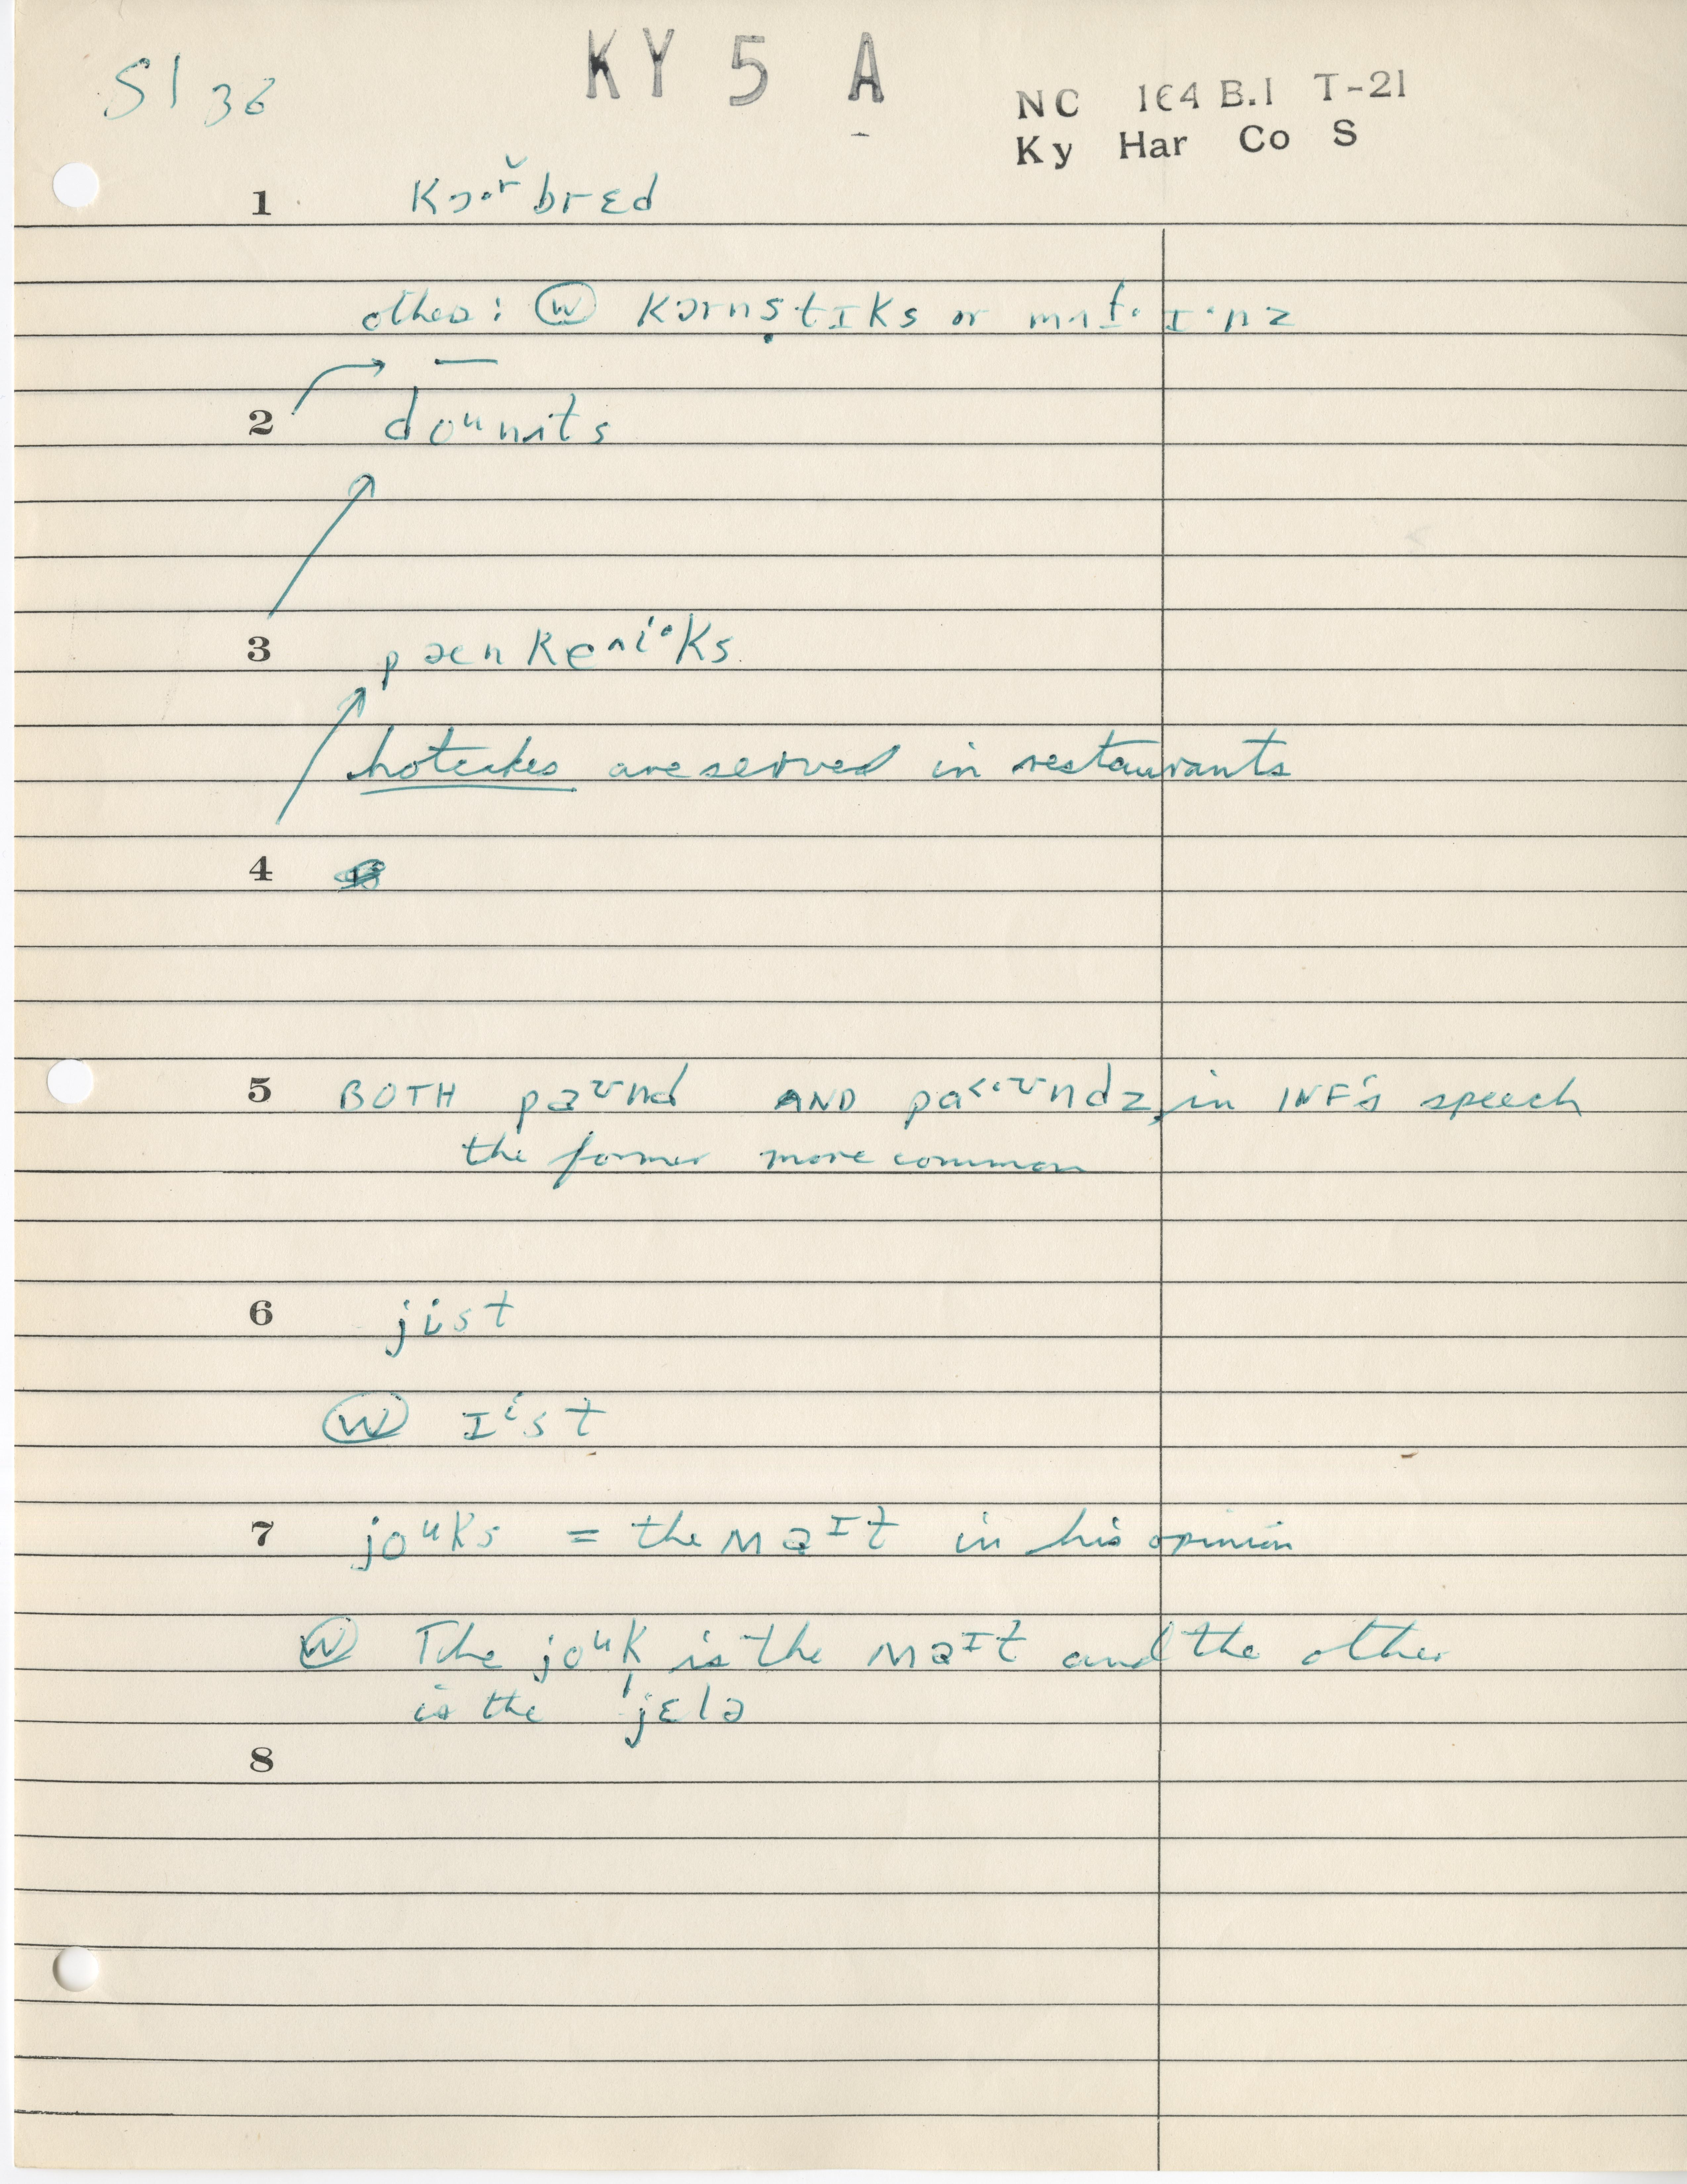 KY 5 A
NC 164 B.1 T-21
Ky Har Co S
1 kɔ·ř bred
other: Ⓦ kɔrnstɪks or
2 doᵘnʌts
3
hotcakes are served in restaurants
4
5 BOTH paᶷnd AND pa<·ᶷndz, in INF's speech
the former more common
6 jist
Ⓦ ɪⁱst
7 joᵘks = the ʍaᶦt in his opinion
Ⓦ The joᵘk is the ʍaᶦt and the other
is the ˈjɛlə
8